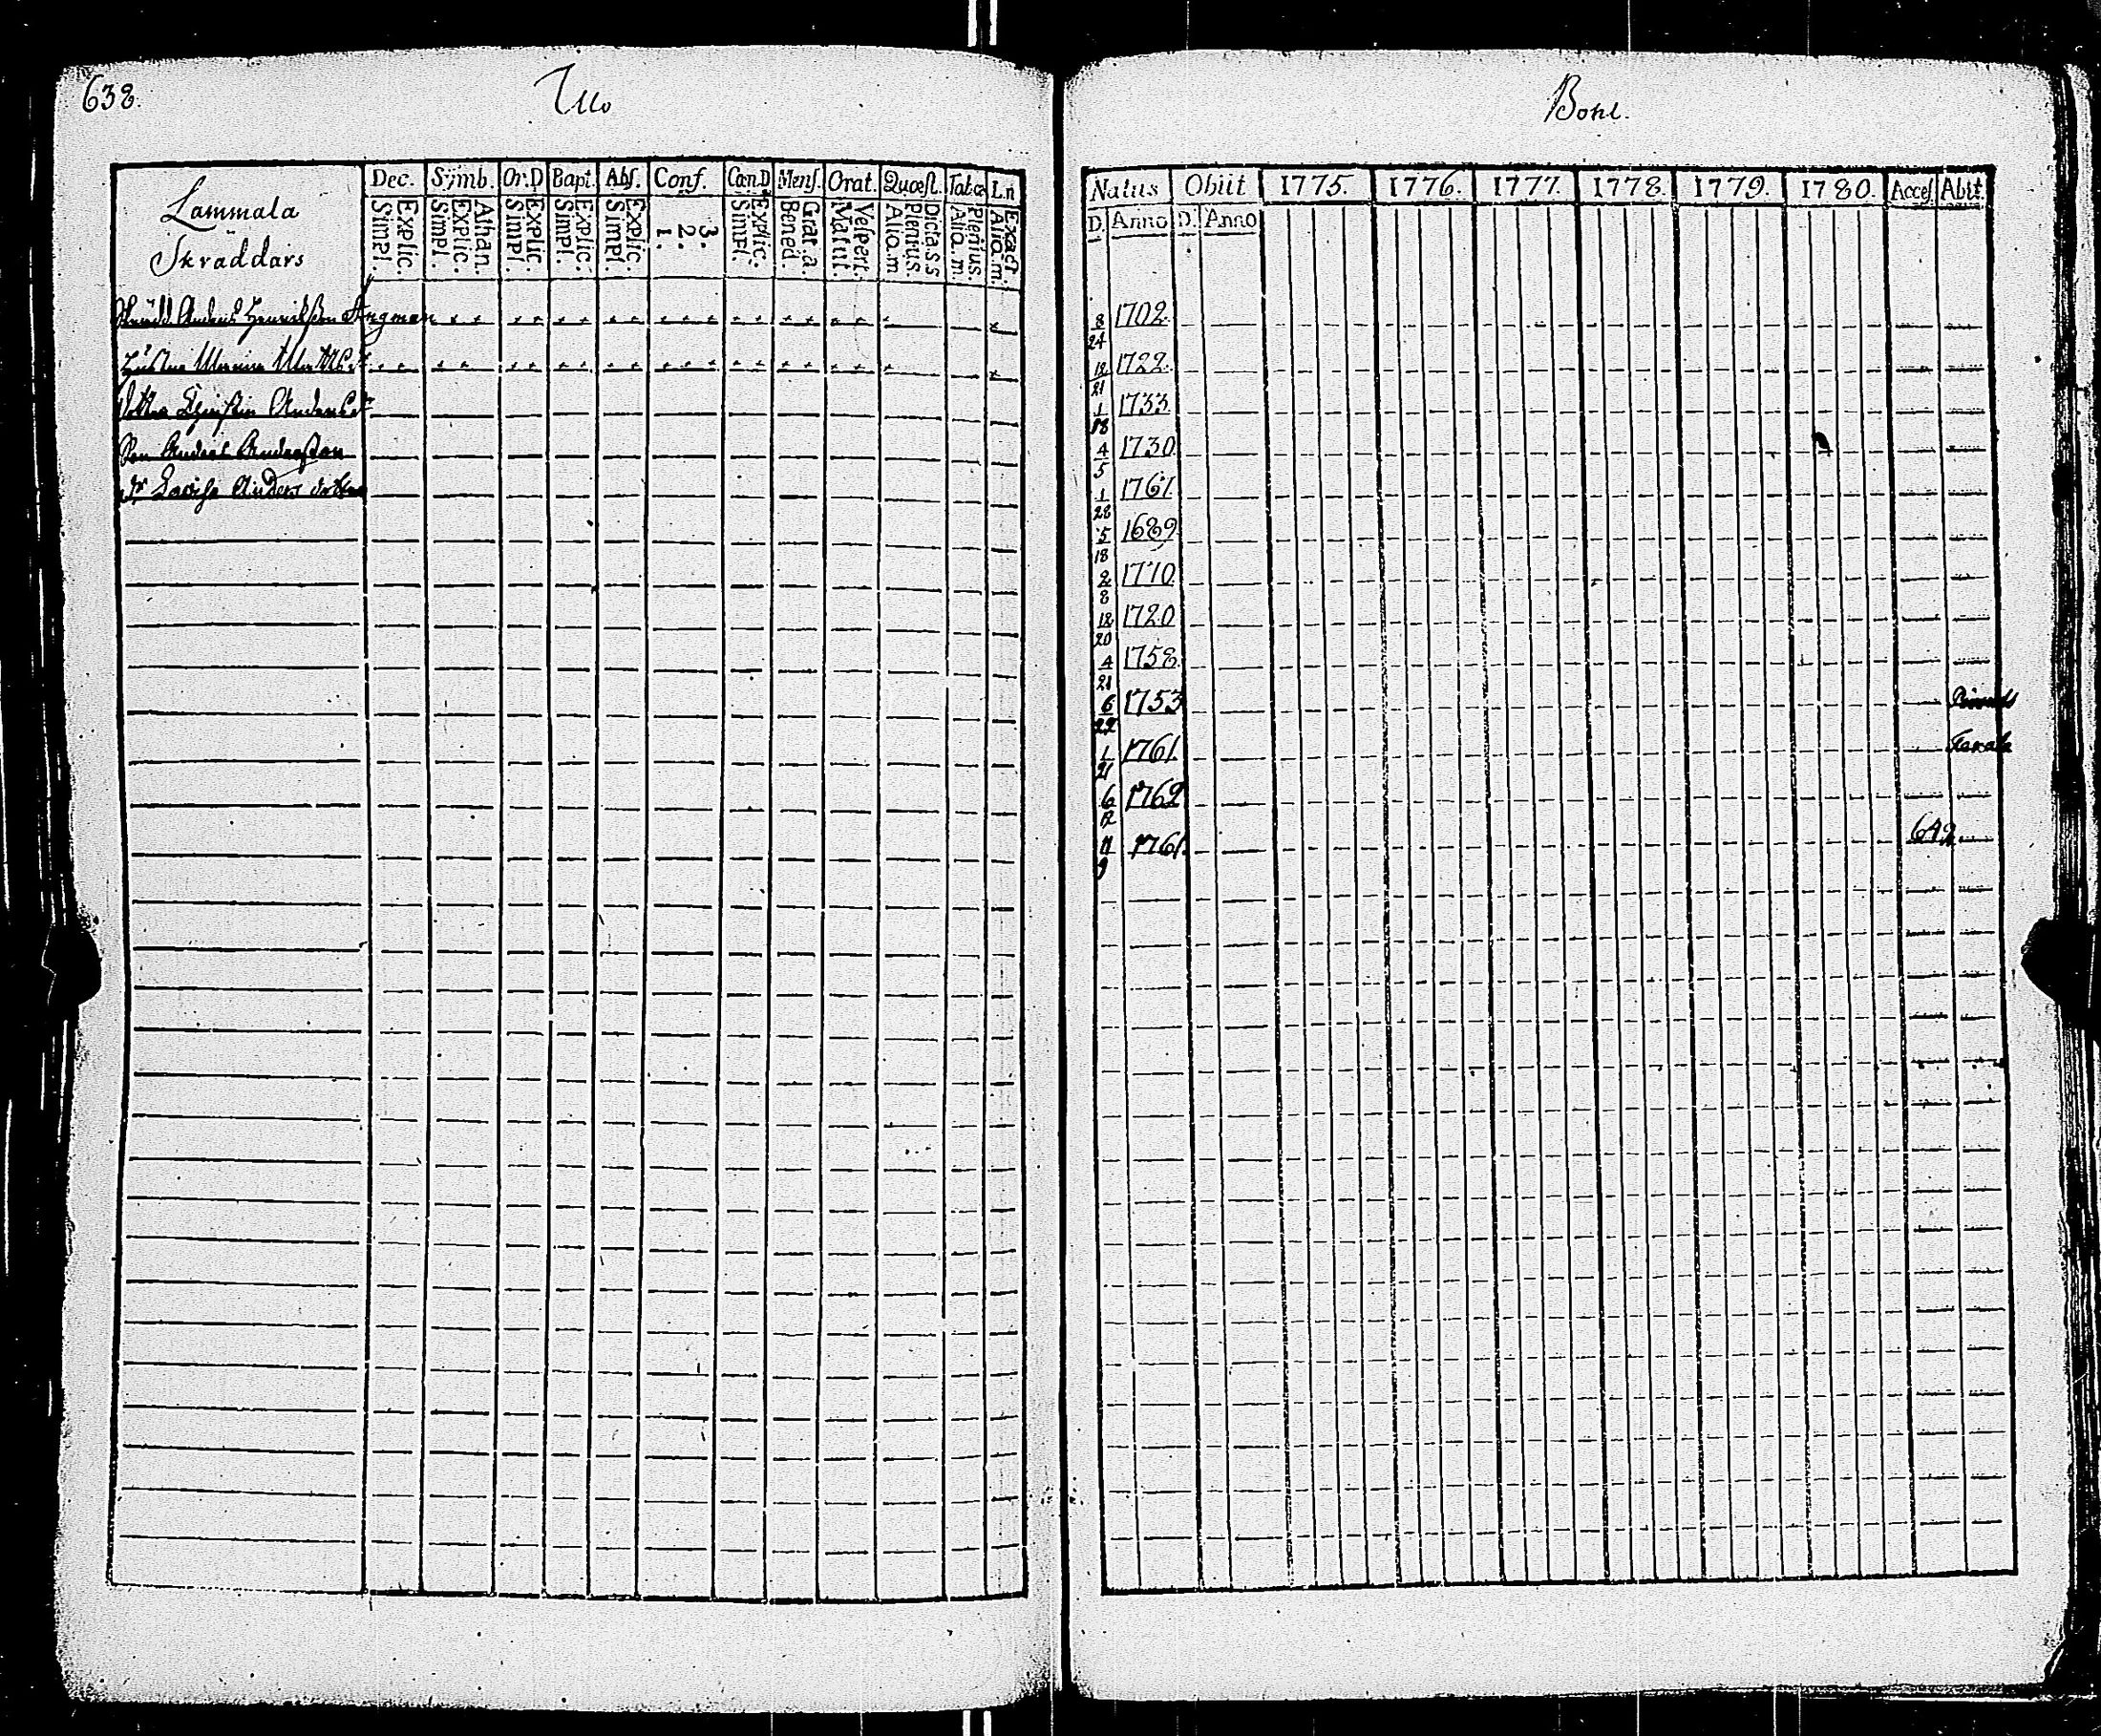 638.
Ulo
Lammala
Skräddars
Dec. Symb. Or.D Bapt. Abs. Conf. Cœn.D Mens. Orat. Quœst. Tab.œ Ln
Simpl. Explic. Simpl. Explic. Athan. Simpl. Explic. Simpl. Explic. Simpl. Explic. 1. 2. 3. Simpl. Explic. Bened. Grat.a. Matut. Vespert. Alio.m Plenius. Dicta.ss Alia.m. Plenius. Alia.m. Exact
Skrädd. Anders Henrikßon Ängman
Hustru
Dottra Christin Andersd
Son Anders Andersson
Anders dotter
Bohl.
Natus Obiit 1775. 1776. 1777. 1778. 1779. 1780. Acces. Abit.
D. Anno D. Anno
8/24 1702.
12/21 1722.
1/18 1733.
4/5 1730.
1/28 1761.
5/18 1689.
2/8 1710.
12/20 1720
4/21 1758.
6/22 1753
1/21 1761.
6/12 1762
11/9 1761. 642